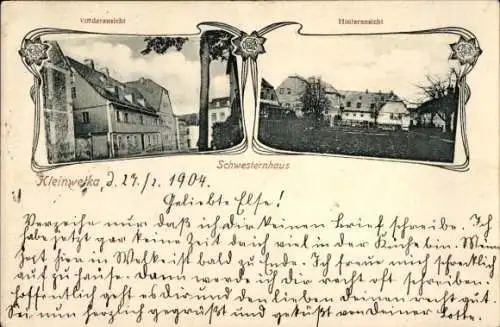 Vorderansicht
Hinteransicht
Schwesternhaus
Kleinwelka, d. 24/2. 1904.
Geliebte Else!
Verzeihe nur daß ich Dir keinen Brief schreibe. Ich
habe jetzt gar keine Zeit da ich viel in der Küche bin. Meine
Zeit hier in Welk. ist bald zu Ende. Ich freue mich schrecklich
auf zu Hause. Dann werde ich Dir recht oft schreiben.
Hoffentlich geht es Dir und den lieben Deinen recht gut.
Sei nun herzlich gegrüßt und geküßt von Deiner Lotte.